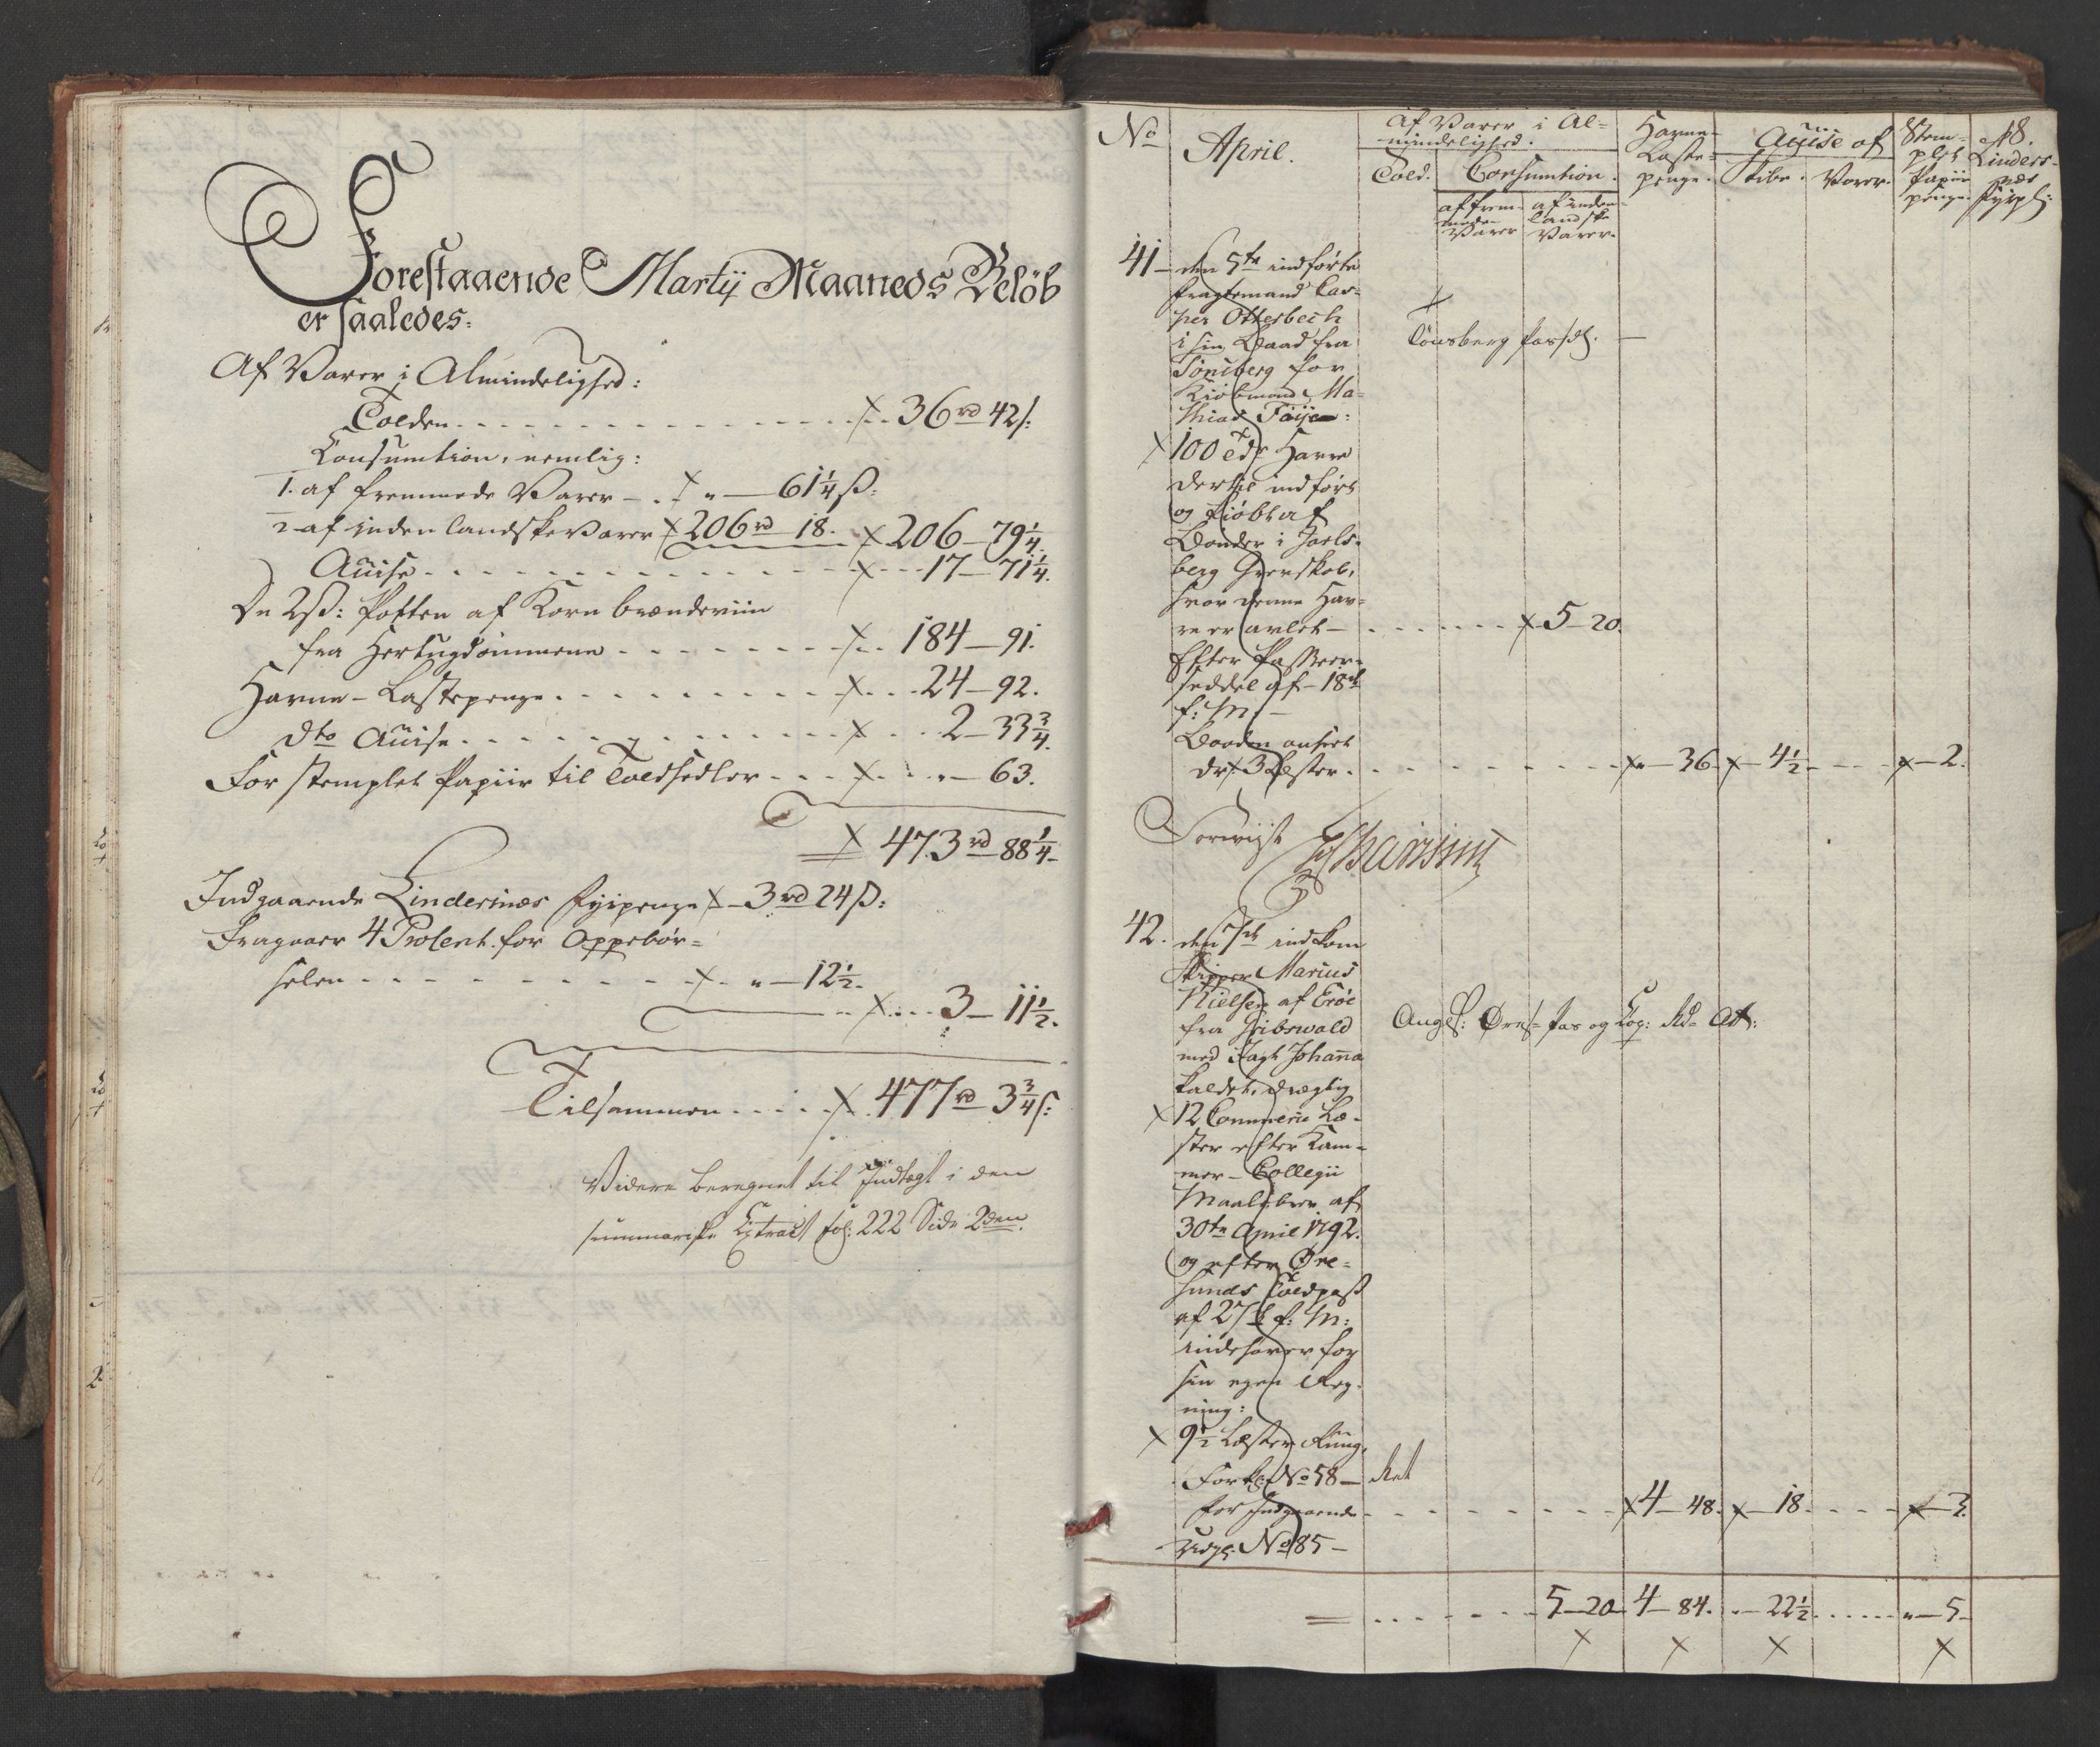 Forestaaende Martij Maaneds Beløb
er saaledes:
Af Varer i Almindelighed:
Tolden 36 rd 42 s:
Consumtion, nemlig:
1. af fremmede Varer " — 61 1/4 ß:
2 af indenlandske Varer 206 rd 18. 206 — 79 1/4.
Accise 17 — 71 1/4.
De 2 ß: Potten af Korn brændeviin
fra Hertugdømmene 184 — 91.
Havne-Lastepenge 24 — 92.
Dto Accise 2 — 33 3/4.
For stemplet Papiir til Toldsedler " — 63.
473 rd 88 1/4
Indgaaende Lindesnæs fyrpenge 3 rd 24 ß:
Fragaaer 4 ProCent. for Oppebør=
selen " — 12 1/2.
3 — 11 1/2.
Tilsammen 477 rd 3 3/4 s:
Videre beregnet til Indtægt i den
summariske Extract fol: 222 Side 2den.
No April.
Af Varer i Al=
mindelighed.
Told. Consumtion.
af frem=
mede
Varer
af inden=
landske
Varer.
Havne-
Laste=
penge.
Accise af
Skibe. Varer.
Stem=
plet
Papiir
penge.
48.
Linders=
næs
Fyrp:
41 — den 5te indførte
fragtemand Cas=
per Otterbech
i sin Baad fra
Tønsberg for
Kiøbmand Ma=
thias Föyen:
Tønsberg Pass:
100 tdr Havre
dertil indført
og kiøbt af
Bønder i Jarls=
berg Grevskab,
hvor denne Hav=
re er avlet — 5 — 20.
Efter Passeer=
seddel af 18de
f: M: —
Baaden anseet
dr: 3 Læster. " — 36. 4 1/2 2.
42. den 7de indkom
Skipper Marius
Nielsen af Eröe
fra Gribswald
med Jagt Johanna
kaldet, drægtig
12 Commerce Læ=
ster efter Kam=
mer-Collegii
Maalebrev af
30te April 1792.
og efter Øre=
sunds Toldpass
af 27de f: M:
indehaver for
sin egen Reg=
ning:
9 1/2 Læster Rug,
No 58 —
for Indgaaende 4 — 48. 18. 3.
Udg: No 85 —
5 — 20 4 — 84. 22 1/2 " — 5